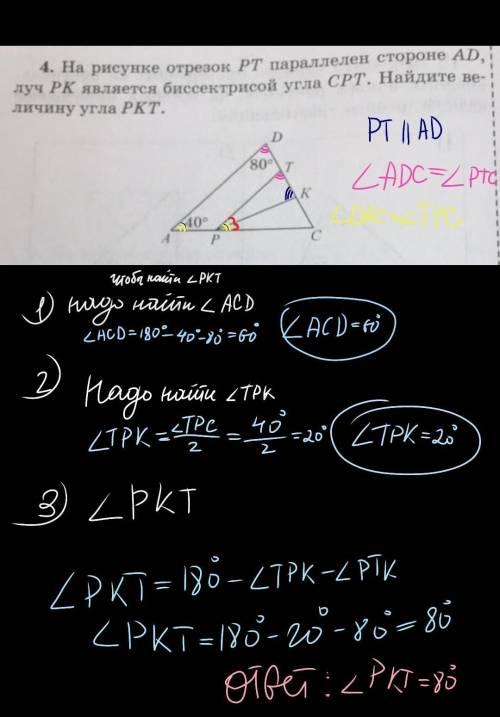 4. На рисунке отрезок PT параллелен стороне AD,
луч PK является биссектрисой угла CPT. Найдите ве-
личину угла PKT.
PT || AD
∠ADC=∠PTC
∠DAC=∠TPC
D
80°
T
K
40°
3
A
P
C
чтобы найти ∠PKT
1) Надо найти ∠ACD
∠ACD=180°-40°-80°=60°
∠ACD=60°
2) Надо найти ∠TPK
∠TPK=∠TPC/2=40°/2=20°
∠TPK=20°
3) ∠PKT
∠PKT=180°-∠TPK-∠PTK
∠PKT=180°-20°-80°=80°
Ответ: ∠PKT=80°